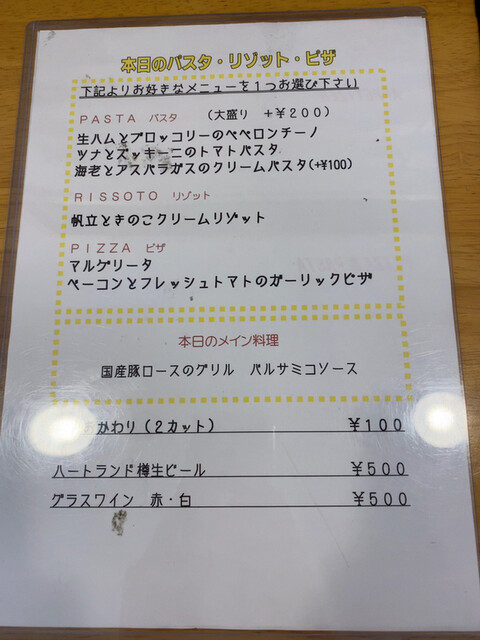 本日のパスタ・リゾット・ピザ
下記よりお好きなメニューを１つお選び下さい
ＰＡＳＴＡ パスタ （大盛り ＋￥２００）
生ハムとブロッコリーのペペロンチーノ
ツナとズッキーニのトマトパスタ
海老とアスパラガスのクリームパスタ(+¥100)
ＲＩＳＳＯＴＯ リゾット
帆立ときのこクリームリゾット
ＰＩＺＺＡ ピザ
マルゲリータ
ベーコンとフレッシュトマトのガーリックピザ
本日のメイン料理
国産豚ロースのグリル バルサミコソース
かわり（２カット） ￥１００
ハートランド樽生ビール ￥５００
グラスワイン 赤・白 ￥５００